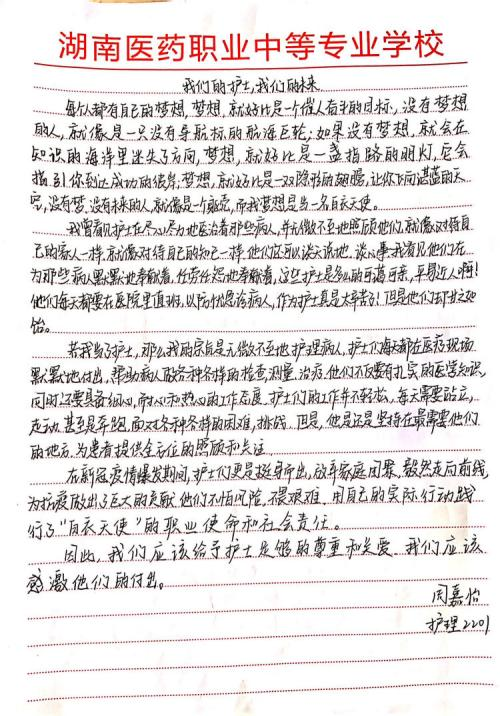 湖南医药职业中等专业学校
我们的护士,我们的未来
每个人都有自己的梦想,梦想,就好比是一个催人奋斗的目标,没有梦想
的人,就像是一只没有导航标的航海巨轮;如果没有梦想,就会在
知识的海洋里迷失了方向,梦想,就好比是一盏指路的明灯,它会
指引你到达成功的彼岸,梦想,就好比是一双隐形的翅膀,让你飞向湛蓝的天
空,没有梦,没有未来的人,就像是一个躯壳,而我梦想是当一名白衣天使。
我曾看见护士在尽心尽力地医治着那些病人,并无微不至地照顾他们,就像对待自
己的家人一样,就像对待自己的知己一样,他们还可以谈天说地,谈心事,我看见他们在
为那些病人默默地奉献着,任劳任怨地奉献着,这些护士是多么的可蔼可亲,平易近人啊!
他们每天都要在医院里值班,以防忧急诊病人,作为护士真是太辛苦了!但是他们却乐之如
饴。
若我当了护士,那么我的宗旨是无微不至地护理病人,护士们每天都在医疗现场
默默地付出,帮助病人做各种各样的检查,测量,治疗,他们不仅要有扎实的医学知识,
同时还要具备细心,耐心和热心的工作态度,护士们的工作并不轻松,每天需要站立,
走动,甚至是奔跑,面对各种各样的困难,挑战,但是,他们还是坚持在最需要他们
的地方,为患者提供全方位的照顾和关注。
在新冠疫情爆发期间,护士们更是挺身而出,放弃家庭团聚,毅然走向前线,
为抗疫做出了巨大的贡献,他们不怕风险,不畏艰难,用自己的实际行动践
行了“白衣天使”的职业使命和社会责任。
因此,我们应该给予护士足够的尊重和关爱,我们应该
感激他们的付出。
周嘉怡
护理2201